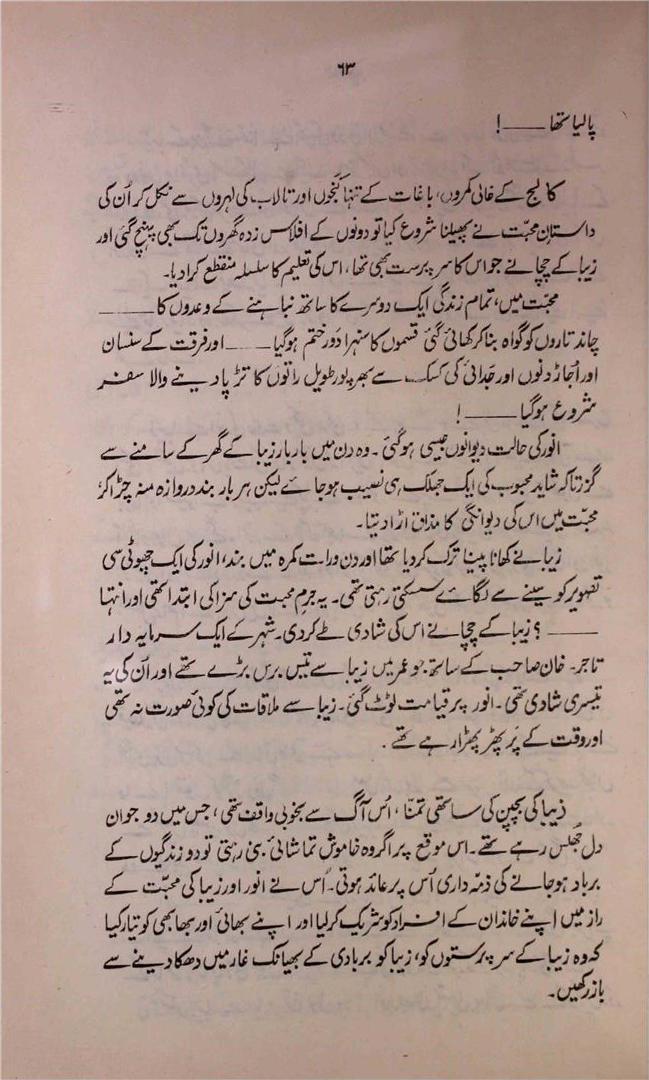 ۶۳
پالیا تھا ——— !
کالج کے خالی کمروں، باغات کے تنہا کُنجوں اور تالاب کی لہروں سے نکل کر اُن کی
داستانِ محبّت نے پھیلنا شروع کیا تو دونوں کے افلاس زدہ گھروں تک بھی پہنچ گئی اور
زیبا کے چچا نے جو اس کا سرپرست بھی تھا، اس کی تعلیم کا سلسلہ منقطع کرا دیا۔
محبّت میں، تمام زندگی ایک دوسرے کا ساتھ نباہنے کے وعدوں کا ———
چاند تاروں کو گواہ بنا کر کھائی گئی قسموں کا سنہرا دَور ختم ہوگیا ——— اور فرقت کے سنسان
اور اُجاڑ دنوں اور جُدائی کی کسک سے بھرپور طویل راتوں کا تڑپا دینے والا سفر
شروع ہوگیا ——— !
انور کی حالت دیوانوں جیسی ہوگئی۔ وہ دن میں بار بار زیبا کے گھر کے سامنے سے
گزرتا کہ شاید محبوب کی ایک جھلک ہی نصیب ہو جائے لیکن ہر بار بند دروازہ منہ چڑا کر،
محبّت میں اس کی دیوانگی کا مذاق اڑا دیتا۔
زیبا نے کھانا پینا ترک کر دیا تھا اور دن و رات کمرہ میں بند، انور کی ایک چھوٹی سی
تصویر کو سینے سے لگائے سسکتی رہتی تھی۔ یہ جرمِ محبت کی سزا کی ابتدا تھی اور انتہا
——— ؟ زیبا کے چچا نے اس کی شادی طے کر دی۔ شہر کے ایک سرمایہ دار
تاجر۔ خان صاحب کے ساتھ جو عمر میں زیبا سے تیس برس بڑے تھے اور اُن کی یہ
تیسری شادی تھی۔ انور پر قیامت ٹوٹ گئی۔ زیبا سے ملاقات کی کوئی صورت نہ تھی
اور وقت کے پَر پھڑ پھڑا رہے تھے۔
زیبا کی بچپن کی ساتھی تمنّا، اُس آگ سے بخوبی واقف تھی، جس میں دو جوان
دل جُھلس رہے تھے۔ اس موقع پر اگر وہ خاموش تماشائی بنی رہتی تو دو زندگیوں کے
برباد ہو جانے کی ذمّہ داری اُس پر عائد ہوتی۔ اُس نے انور اور زیبا کی محبّت کے
راز میں اپنے خاندان کے افراد کو شریک کر لیا اور اپنے بھائی اور بھابھی کو تیار کیا
کہ وہ زیبا کے سرپرستوں کو، زیبا کو بربادی کے بھیانک غار میں دھکا دینے سے
باز رکھیں۔